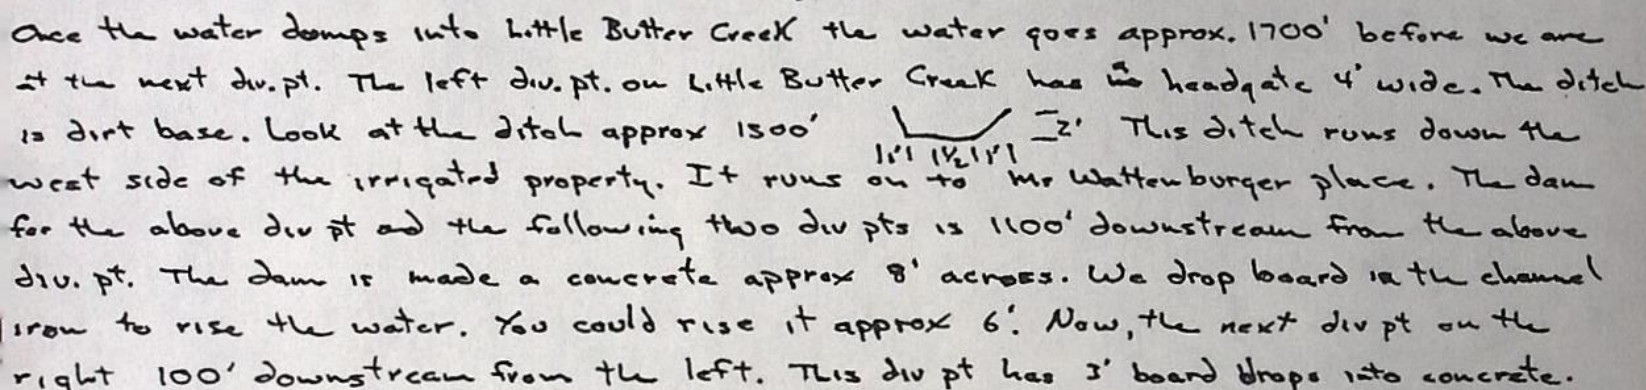 Once the water domps into Little Butter Creek the water goes approx. 1700' before we are
at the next div. pt. The left div. pt. on Little Butter Creek has a headgate 4' wide. The ditch
is dirt base. Look at the ditch approx 1500' 2' This ditch runs down the
1' 1½ 1'
west side of the irrigated property. It runs on to Mr Wattenburger place. The dam
for the above div pt and the following two div pts is 1100' downstream from the above
div. pt. The dam is made a concrete approx 8' across. We drop board in the channel
iron to rise the water. You could rise it approx 6'. Now, the next div pt on the
right 100' downstream from the left. This div pt has 3' board drops into concrete.